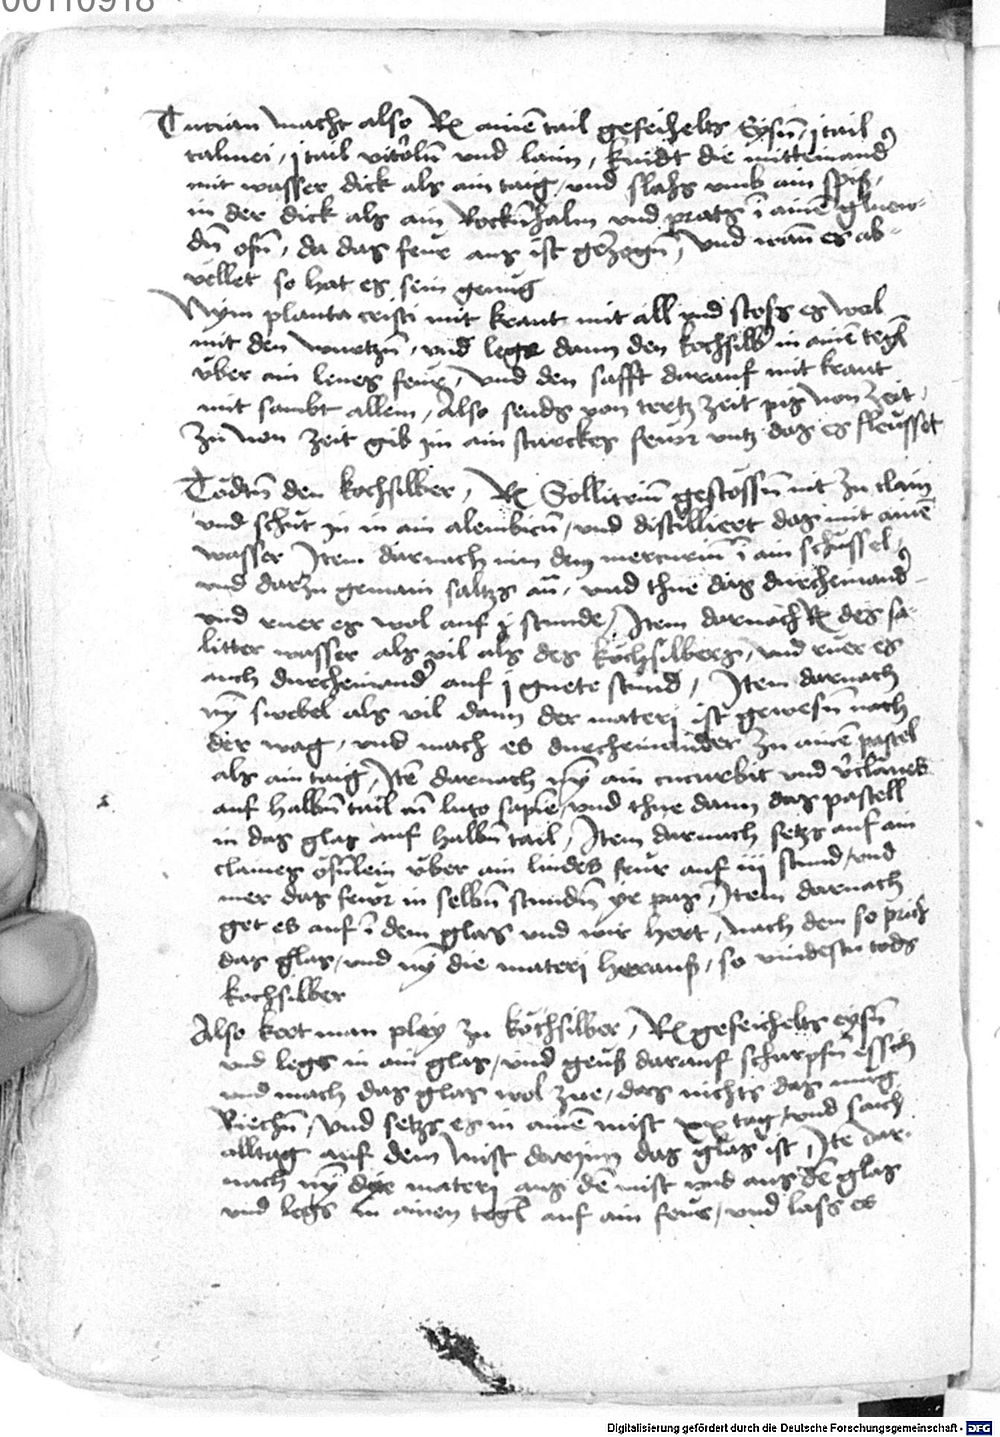 00110918
macht also Rx ainē tail gefeihelts Eysn̄, j tail
calmei, j tail vitrolū und laim, knidt die mitteinand
mit wasser dick als ain taig, und slahs umb ain spis,
in der dick als ain Rockn̄halm und prats ī ainē gluen-
dn̄ ofn̄, da das feur aus ist gezogn̄, und wan̄ es ab-
vellet so hat es sein genug
Nym planta cristi mit kraut mit all und stoss es wol
mit den wurtzn̄, und lege dann den kochsilber in ainē tegl
uber ain leues feur, und den safft darauf mit kraut
mit sambt allem, Also sends von tertz zeit pis non zeit,
zu non zeit gib im ain starckes feur untz das es fleusset
Tödtn̄ den kochsilber, Rx Sollitriū gestossn̄ nit zu clain
und schut in in ain alembicū, und distilliert das mit ainē
wasser Item darnach nim den mercuriū ī ain schussel,
und darzu gemain saltzs an̄, und thue das durcheinand-
und ruer es wol auf j stunde, Item darnach Rx des sa-
litter wasser als vil als des kochsilbers, und ruer es
auch durcheinand auf j guete stund, Item darnach
nȳ swebel als vil dann der materj ist gewesn̄ nach
der wag, und mach es durcheinander zu ainē pastel
als ain taig, Itē darnach nȳ ain cucurbit und v̄claibs
auf halbn̄ tail m̄ luto sapiē, und thue dann das pastell
in das glas auf halbn̄ tail, Item darnach setzs auf ain
claines ofn̄lein uber ain lindes feur auf iij stund, und
mer das feur in selbn̄ stundn̄ ye pas, Item darnach
get es auf ī dem glas und wirt hert, nach dem so prich
das glas, und nȳ die materj heraus, so vindestu tods
kochsilber
Also kert man pley zu kochsilber, Rx gefeichelts eysn̄
und legs in ain glas, und geus darauf scharpfn̄ essich
und mach das glas wol zue, das nichts das mug
Riechn̄, und setzs es in ainē mist xx tag, und saich
alltag auf dem mist darjnn das glas ist, Ite dar-
nach nȳ dye materj aus dē mist und aus dē glas
und legs in ainen tegl auf ain feur, und lass es
Digitalisierung gefördert durch die Deutsche Forschungsgemeinschaft - DFG